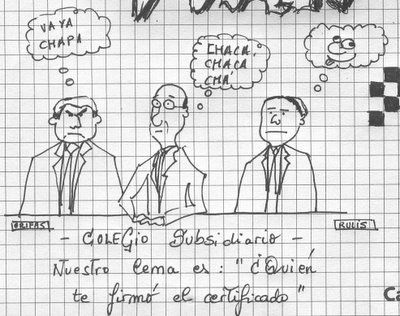 VAYA
CHAPA
CHACA,
CHACA
CHÁ
ORIFAS
RULIS
- COLEGIO Subsidiario -
Nuestro lema es: "¿Quién
te firmó el certificado"
Ca